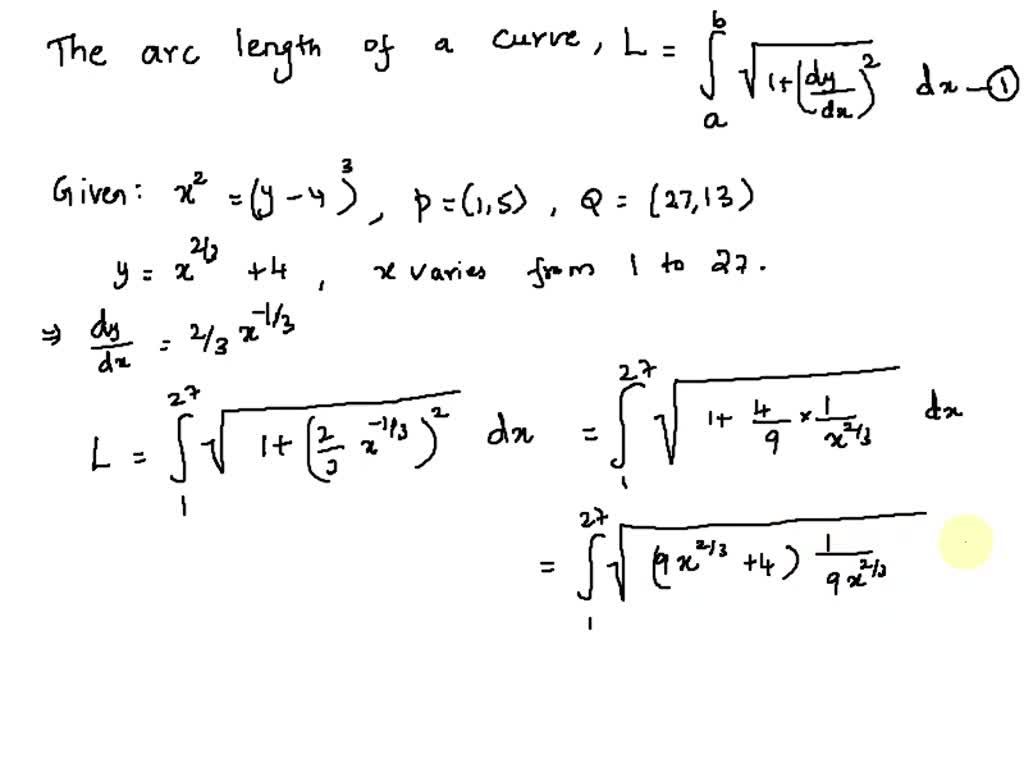 The arc length of a curve, L = ∫_a^b √(1+(dy/dx)^2) dx —①
Given: x^2 = (y-4)^3, P=(1,5), Q = (27,13)
y = x^{2/3} +4, x varies from 1 to 27.
⇒ dy/dx = 2/3 x^{-1/3}
L = ∫_1^{27} √(1+(2/3 x^{-1/3})^2) dx = ∫_1^{27} √(1+ 4/9 × 1/x^{2/3}) dx
= ∫_1^{27} √((9x^{2/3} +4) 1/9x^{2/3})